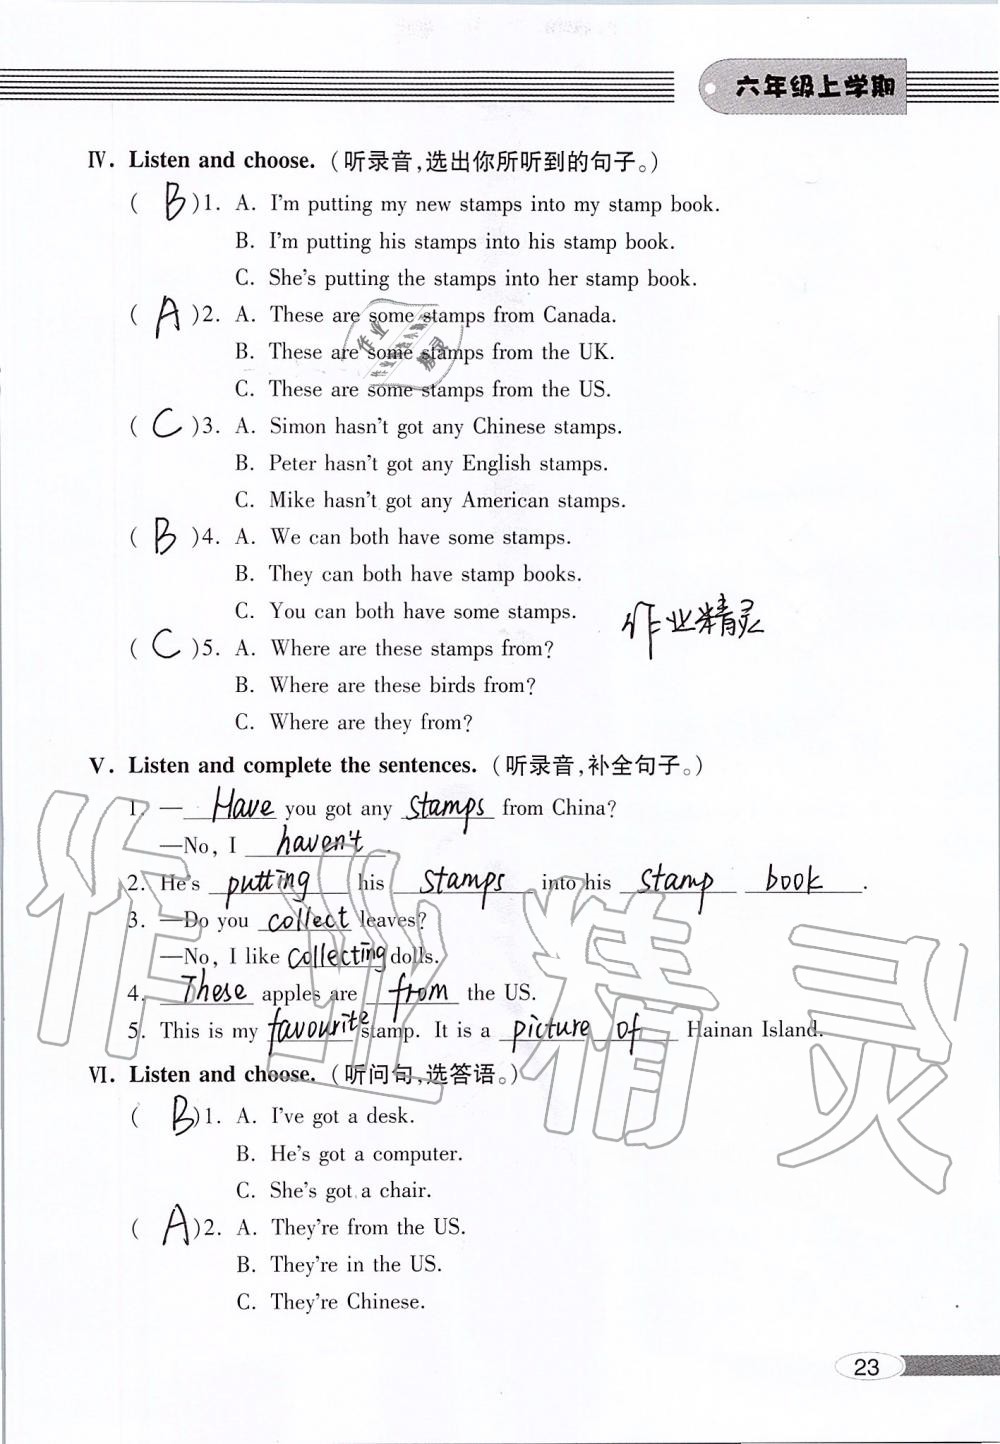 六年级上学期
Ⅳ. Listen and choose. (听录音,选出你所听到的句子。)
( B )1. A. I'm putting my new stamps into my stamp book.
B. I'm putting his stamps into his stamp book.
C. She's putting the stamps into her stamp book.
( A )2. A. These are some stamps from Canada.
B. These are some stamps from the UK.
C. These are some stamps from the US.
( C )3. A. Simon hasn't got any Chinese stamps.
B. Peter hasn't got any English stamps.
C. Mike hasn't got any American stamps.
( B )4. A. We can both have some stamps.
B. They can both have stamp books.
C. You can both have some stamps.
作业精灵
( C )5. A. Where are these stamps from?
B. Where are these birds from?
C. Where are they from?
Ⅴ. Listen and complete the sentences. (听录音,补全句子。)
1. — Have you got any stamps from China?
—No, I haven't.
2. He's putting his stamps into his stamp book.
3. —Do you collect leaves?
—No, I like collecting dolls.
4. These apples are from the US.
5. This is my favourite stamp. It is a picture of Hainan Island.
Ⅵ. Listen and choose. (听问句,选答语。)
( B )1. A. I've got a desk.
B. He's got a computer.
C. She's got a chair.
( A )2. A. They're from the US.
B. They're in the US.
C. They're Chinese.
23
作业精灵